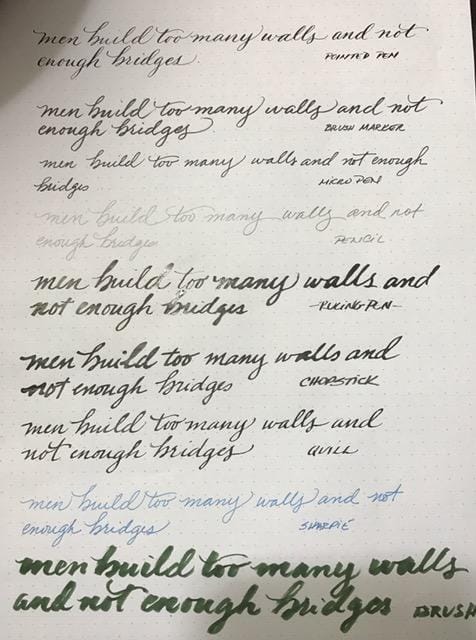 men build too many walls and not
enough bridges.
POINTED PEN
men build too many walls and not
enough bridges
BRUSH MARKER
men build too many walls and not enough
bridges
MICRO PEN
men build too many walls and not
enough bridges
PENCIL
men build too many walls and
not enough bridges
-RULING PEN-
men build too many walls and
not enough bridges
CHOPSTICK
men build too many walls and
not enough bridges
QUILL
men build too many walls and not
enough bridges
SHARPIE
men build too many walls
and not enough bridges
BRUSH